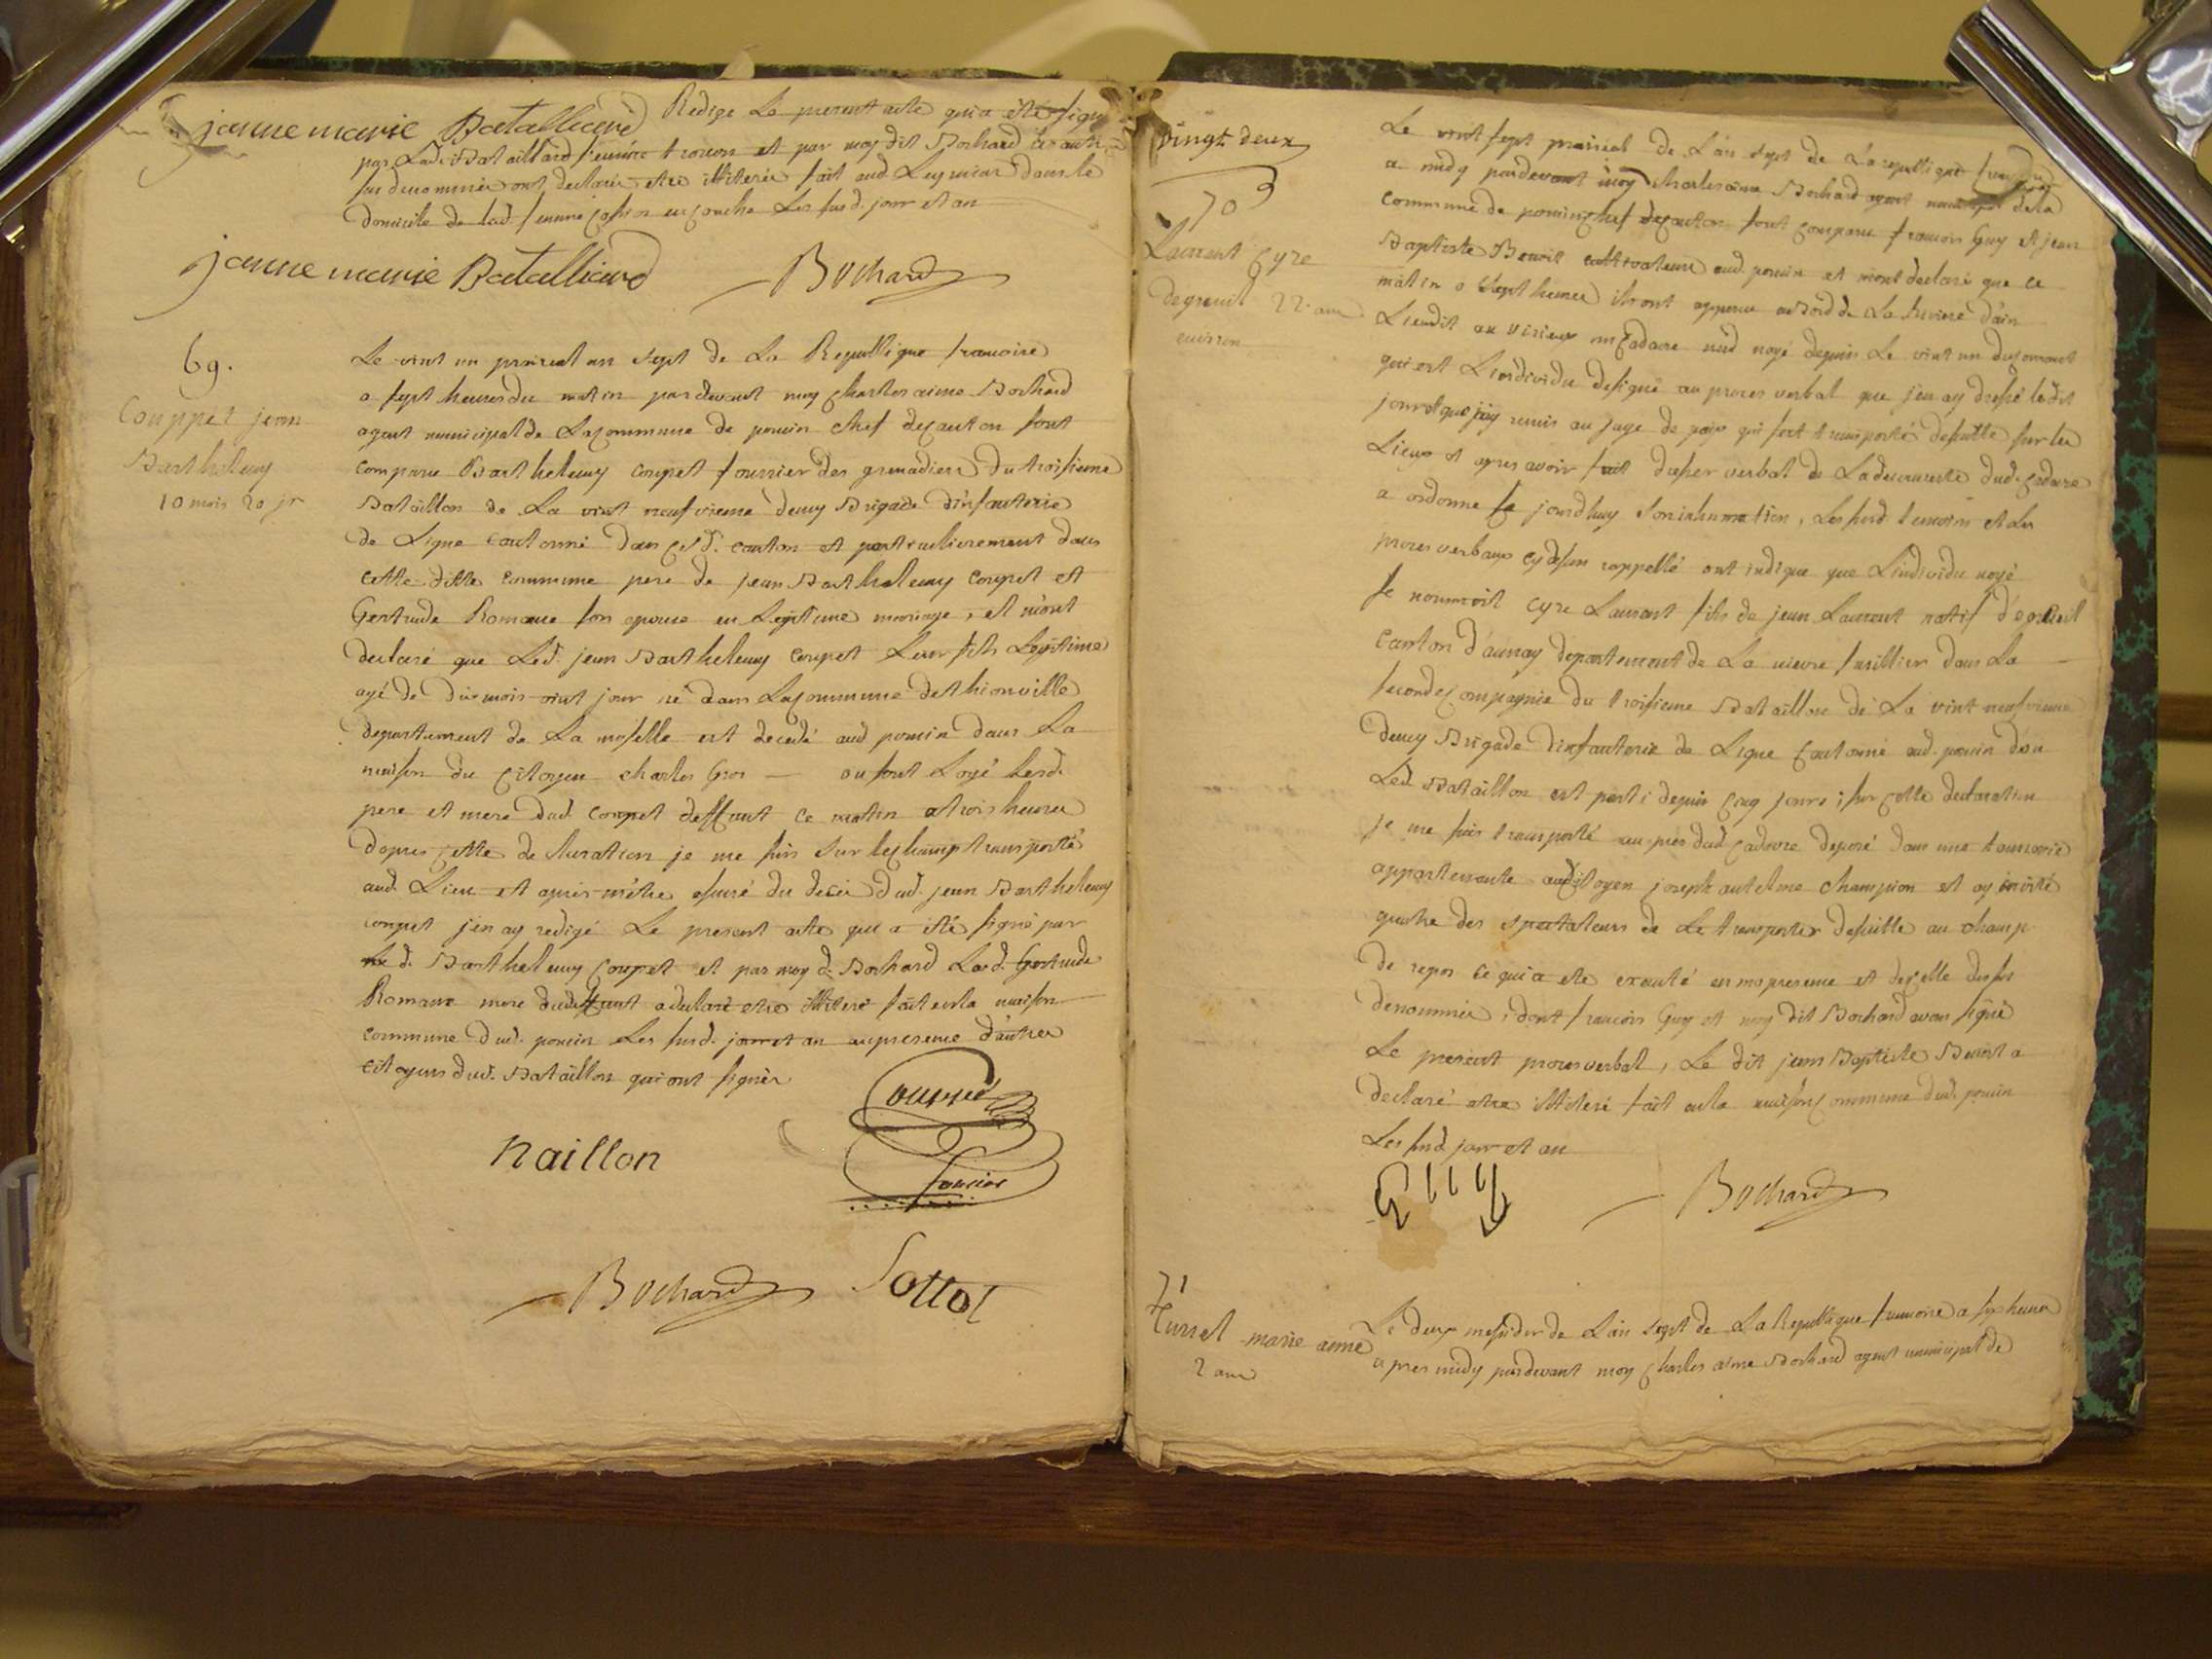 janne marie Batalliard Redigé Le present acte qui a été signé
par Lad. Bataillard premiere temoin et par moy dit Bochard les autres
sus denommées ont declarés etre illiterés fait aud Leymiat dans le
domicile de lad. femme en couche Les susd. jour et an
janne marie Batalliard Bochard
69.
Couppet jean
Barthelemy
10 mois 20 jr
Le vint un prairial an sept de La Republique francoise
a sept heures du matin pardevant moy Charles aime Bochard
agent municipal de La commune de poncin chef de canton sont
comparu Barthelemy coupet fourrier des grenadiers du troisieme
Bataillon de La vint neufvieme demy Brigade d'infanterie
de Ligne cantonné dans ced. canton et particulierement dans
cette ditte commune pere de jean Barthelemy coupet et
Gertrude Romane son epouse en Legitime mariage, et m'ont
declaré que Led. jean Barthelemy coupet Leur fils Legitime
agé de dix mois vint jour né dans La commune de thionville
departement de La moselle est decedé aud poncin dans La
maison du Citoyen charles Gros — ou sont Logé Lesd.
pere et mere dud. coupet deffunt ce matin a trois heures
d'apres cette declaration je me suis sur le champ transporté
aud. Lieu et apres m'etre assuré du decès dud. jean Barthelemy
coupet j'en ay redigé Le present acte qui a été signé par
Led. Barthelemy Coupet et par moy d. Bochard Lad. Gertrude
Romane mere dud deffunt a declaré etre illiteré fait en la maison
commune dud. poncin Les susd. jour et an en presence d'autres
citoyens dud. Bataillon qui ont signés
naillon
Bochard Sottot
vingt deux
70
Laurent Cyre
degreuil 22 ans
environ
Le vint sept prairial de L'an sept de La republique francoise
a midy pardevant moy charles aime Bochard agent municipal de la
commune de poncin chef de canton sont comparu francois Guy et jean
Baptiste Benoit cultivateurs aud. poncin et m'ont declaré que ce
matin a sept heures ils ont apperçu au Bord de La Riviere d'ain
Lieudit un cadavre nud noyé depuis Le vint un du courant
qui est L'individu designé au proces verbal que j'en ay dressé ledit
jour et que j'ay remis au juge de paix qui s'est transporté desuitte sur les
Lieux et apres avoir fait dresser verbal de La decouverte dud. cadavre
a ordonné ce jourdhuy son inhumation, Les susd temoins et Les
proces verbaux cy dessus rappellé ont indiqué que L'individu noyé
se nommoit Cyre Laurent fils de jean Laurent natif d'egreuil
canton d'aunay departement de La nievre fusillier dans La
seconde compagnie du troisieme Bataillon de La vint neufvieme
demy Brigade d'infanterie de Ligne cantonné aud. poncin d'ou
Led. Bataillon est parti depuis cinq jours; sur cette declaration
je me suis transporté au pres dud. cadavre deposé dans une tannerie
appartenante au citoyen joseph antelme champion et ay invité
quatre des spectateurs de Le transporter desuitte au champ
de repos ce qui a eté executé en ma presence et de celle des sus
denommés, dont francois Guy et moy dit Bochard avons signé
Le present proces verbal, Le dit jean Baptiste Benoit a
declaré etre illiteré fait en la maison commune dud. poncin
Les susd. jour et an
Guy Bochard
71
Turrel marie aimé
2 ans
Le deux messidor de L'an sept de La Republique francoise a six heures
apres midy pardevant moy Charles aime Bochard agent municipal de